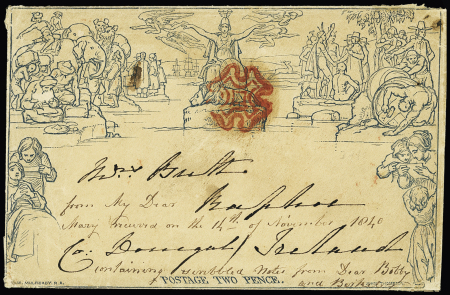 Mrs Butt
from My Dear Raphoe
Mary received on the 14th of November 1840
Co. Donegal Ireland
Containing scribbled Notes from Dear Bobby
and
POSTAGE TWO PENCE.